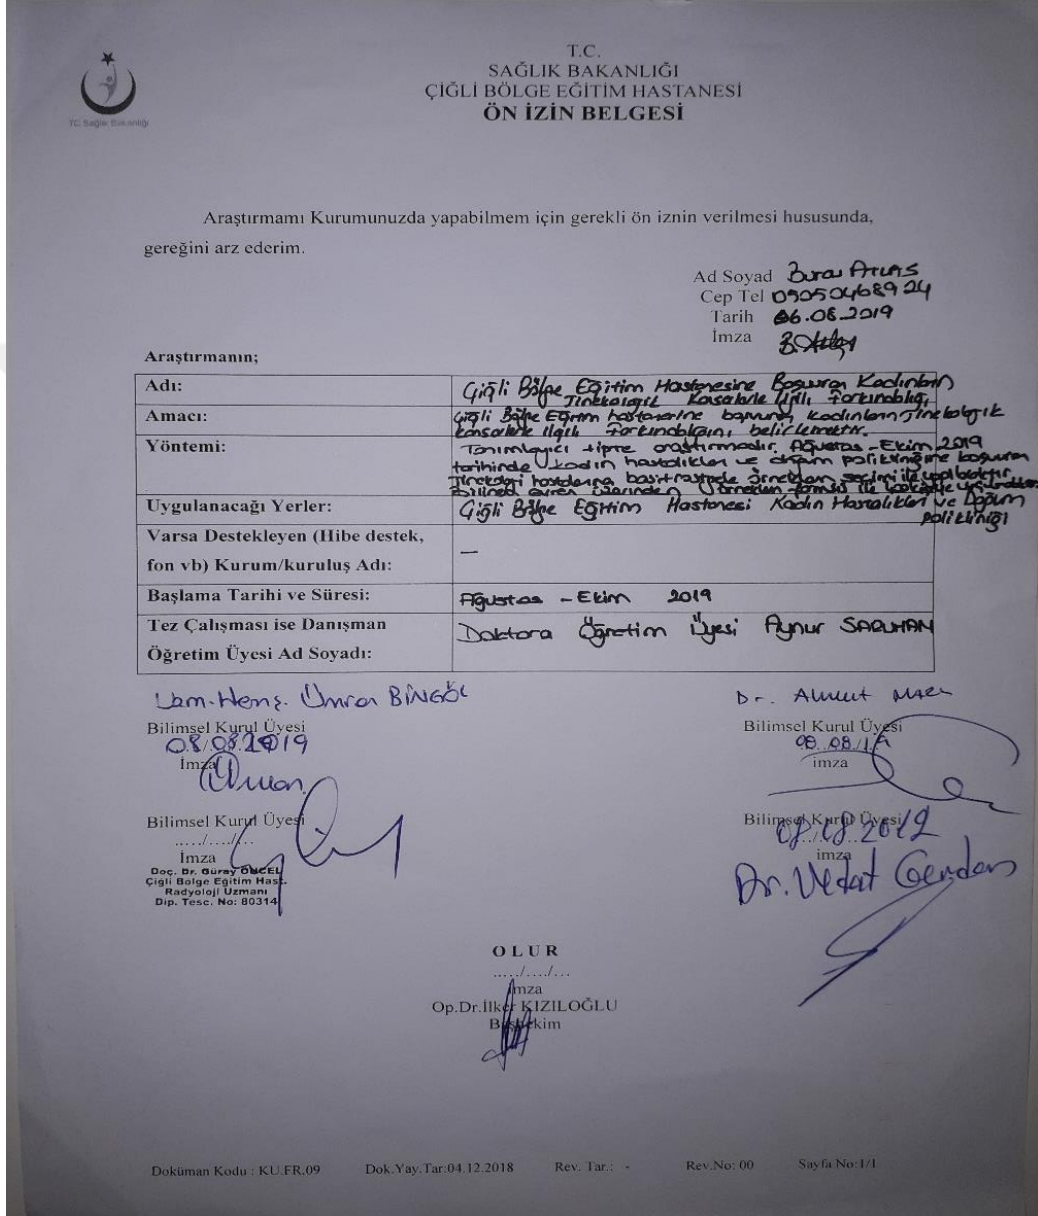 T.C.
SAĞLIK BAKANLIĞI
ÇİĞLİ BÖLGE EĞİTİM HASTANESİ
ÖN İZİN BELGESİ
T.C. Sağlık Bakanlığı
Araştırmamı Kurumunuzda yapabilmem için gerekli ön iznin verilmesi hususunda,
gereğini arz ederim.
Ad Soyad Burcu ATLAS
Cep Tel 09050468924
Tarih 06.08.2019
İmza B.Atlas
Araştırmanın;
Adı: Çiğli Bölge Eğitim Hastanesine Başvuran Kadınların
Jinekolojik Kanserlerle İlgili Farkındalığı
Amacı: Çiğli Bölge Eğitim hastanesine başvuran kadınların jinekolojik
kanserlerle ilgili farkındalığını belirlemektir.
Yöntemi: Tanımlayıcı tipte araştırmadır. Ağustos - Ekim 2019
tarihinde kadın hastalıkları ve doğum polikliniğine başvuran
jinekoloji hastalarına basit rastgele örneklem seçimi ile yapılacaktır.
Bilinen evren üzerinden örneklem formülü ile
Uygulanacağı Yerler: Çiğli Bölge Eğitim Hastanesi Kadın Hastalıkları ve Doğum
polikliniği
Varsa Destekleyen (Hibe destek,
fon vb) Kurum/kuruluş Adı: —
Başlama Tarihi ve Süresi: Ağustos - Ekim 2019
Tez Çalışması ise Danışman
Öğretim Üyesi Ad Soyadı: Doktora Öğretim Üyesi Aynur SARUHAN
Ümran BİNGÖL
Bilimsel Kurul Üyesi
08/08/2019
İmza
Ümran
Dr. Ahmet
Bilimsel Kurul Üyesi
08.08/19
imza
Bilimsel Kurul Üyesi
...../..../...
İmza
Doç. Dr. Güray ÖNCEL
Çiğli Bölge Eğitim Hast.
Radyoloji Uzmanı
Dip. Tesc. No: 80314
Bilimsel Kurul Üyesi
08.08.2019
imza
Dr. Vedat
OLUR
...../..../...
İmza
Op.Dr.İlker KIZILOĞLU
Başhekim
Doküman Kodu : KU.FR.09 Dok.Yay.Tar:04.12.2018 Rev. Tar.: - Rev.No: 00 Sayfa No:1/1